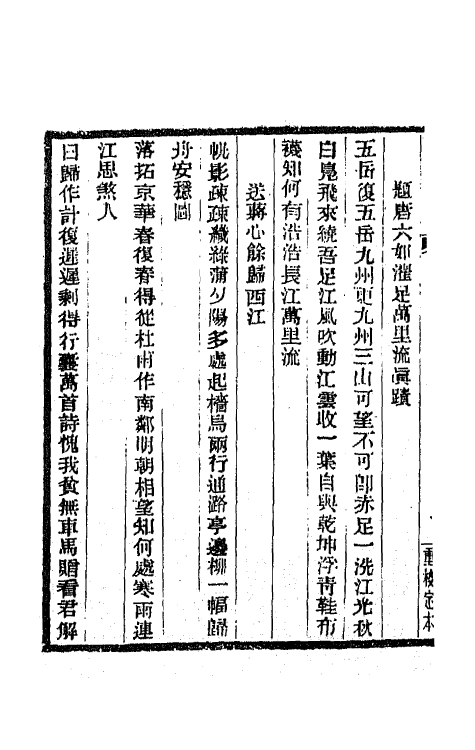 題唐六如濯足萬里流眞蹟
五岳復五岳九州更九州三山可望不可卽赤足一洗江光秋
白鳧飛來繞吾足江風吹動江雲收一葉自與乾坤浮靑鞋布
襪知何有浩浩長江萬里流
送蔣心餘歸西江
帆影疎疎織綠蒲夕陽多處起檣烏兩行通路亭邊柳一幅歸
舟安穩圖
落拓京華春復春得從杜甫作南鄰明朝相望知何處寒雨連
江思煞人
曰歸作計復遲遲剩得行囊萬首詩愧我貧無車馬贈看君解
重校定本